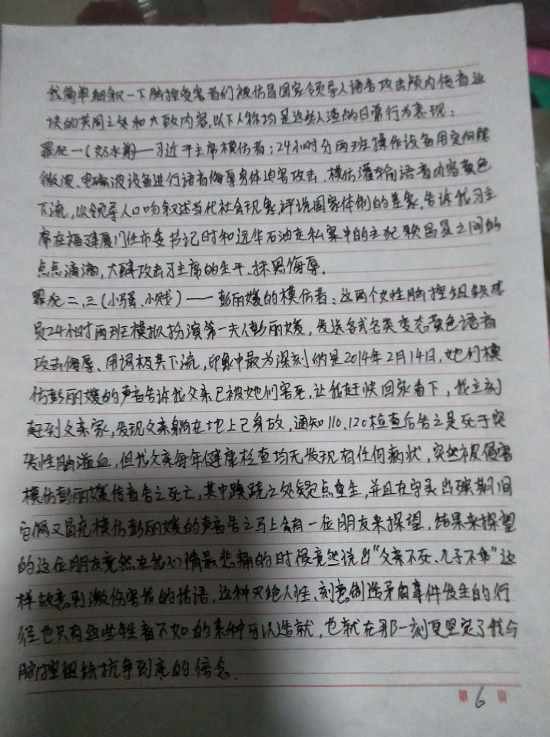 我简单细叙一下脑控受害者们被仿冒国家领导人语音攻击颅内传音这
块的共同之处和大致内容,以下人称均是这些人渣的日常行为表现:
罪犯一(
)—习近平主席模仿者:24小时分两班操作设备用定向能
微波、电磁波设备进行语音侮辱身体迫害攻击,模仿
语音内容黄色
下流,以领导人口吻叙述当代社会现象,评说国家体制的差象,告诉我习主
席在福建厦门任市委书记时和远华石油走私案中的主犯赖昌星之间的
点点滴滴,大肆攻击习主席的生平、抹黑侮辱。
罪犯二、三(小强、小
)——彭丽媛的模仿者:这两个女性脑控组织成
员24小时两班模拟扮演第一夫人彭丽媛,发送各式各类变态黄色语音
攻击侮辱、用词极其下流,印象中最为深刻的是2014年2月14日,她们模
仿彭丽媛的声音告诉我父亲已被她们害死,让我赶快回家看下,我立刻
赶到父亲家,发现父亲躺在地上已身故,通知110、120检查后告之是死于突
发性脑溢血,但我父亲每年健康检查均无发现有任何病状,突然被
模仿彭丽媛传音告之死亡,其中蹊跷之处疑点重生,并且在守灵出殡期间
它俩又冒充模仿彭丽媛的声音告之马上会有一位朋友来探望,结果来探望
的这位朋友竟然在我心情最悲痛的时候竟然说出“父亲不死、儿子不
”这
样故意刺激伤害我的话语,这种灭绝人性、刻意制造矛盾事件发生的行
径也只有这些牲畜不如的杂种可以造就,也就在那一刻更坚定了我与
脑控组织抗争到底的信念。
第6页